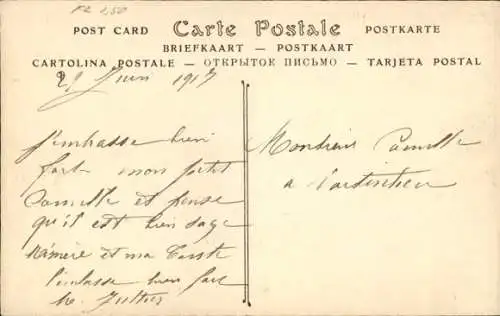 Fr 2,50
POST CARD Carte Postale POSTKARTE
BRIEFKAART — POSTKAART
CARTOLINA POSTALE — ОТКРЫТОК ПИСЬМО — TARJETA POSTAL
Juin 1917
J'embrasse bien
fort mon petit
Camille et pense
qu'il est bien sage
et ma
l'embrasse bien fort
Monsieur Camille
a